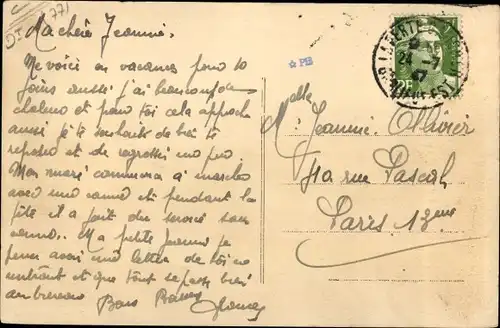 Ma chère Jeannine.
Me voici en vacances pour 10
jours aussi j'ai beaucoup de
chaleur et pour toi cela approche
aussi je te souhaite de bien te
reposer et de un peu
Mon mari commence à marcher
avec une canne et pendant la
fête il a fait du sans
canne. Ma petite je
pense avoir une lettre de toi en
rentrant et que tout se passe bien
au bureau Bons Baisers
☆ PB
24 - 7
47
Melle
Jeannine Ollivier
41a rue Pascal
Paris 13eme